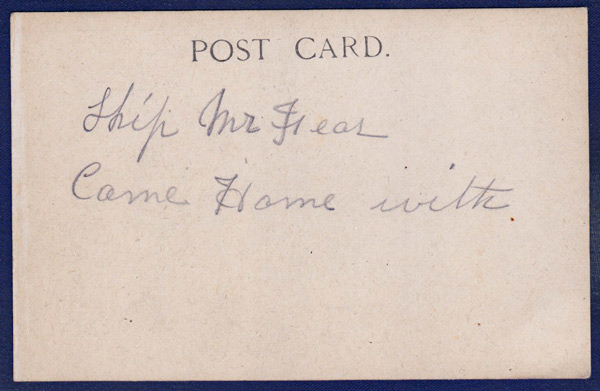 POST CARD.
Ship Mr Fear
Came Home with